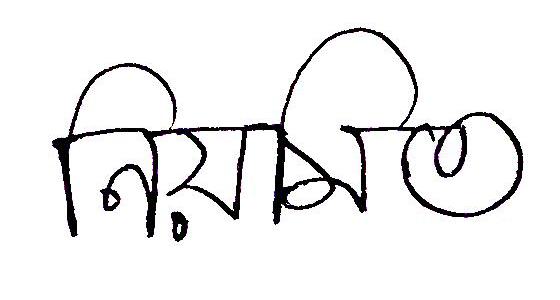 নিয়মিত